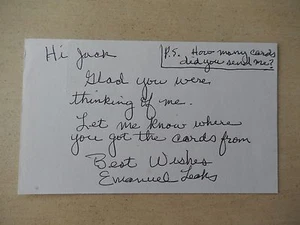 Hi Jack
P.S. How many cards
did you send me?
Glad you were
thinking of me.
Let me know where
you got the cards from
Best Wishes
Emanuel Leaks